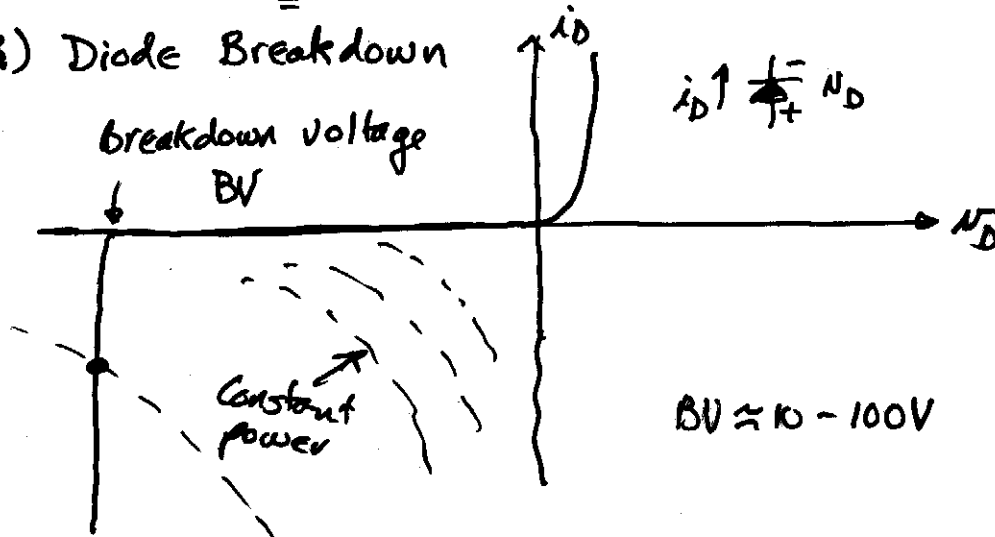 ) Diode Breakdown
i_D
i_D ↑ - + v_D
Breakdown voltage
BV
v_D
Constant
power
BV ≈ 10 - 100V